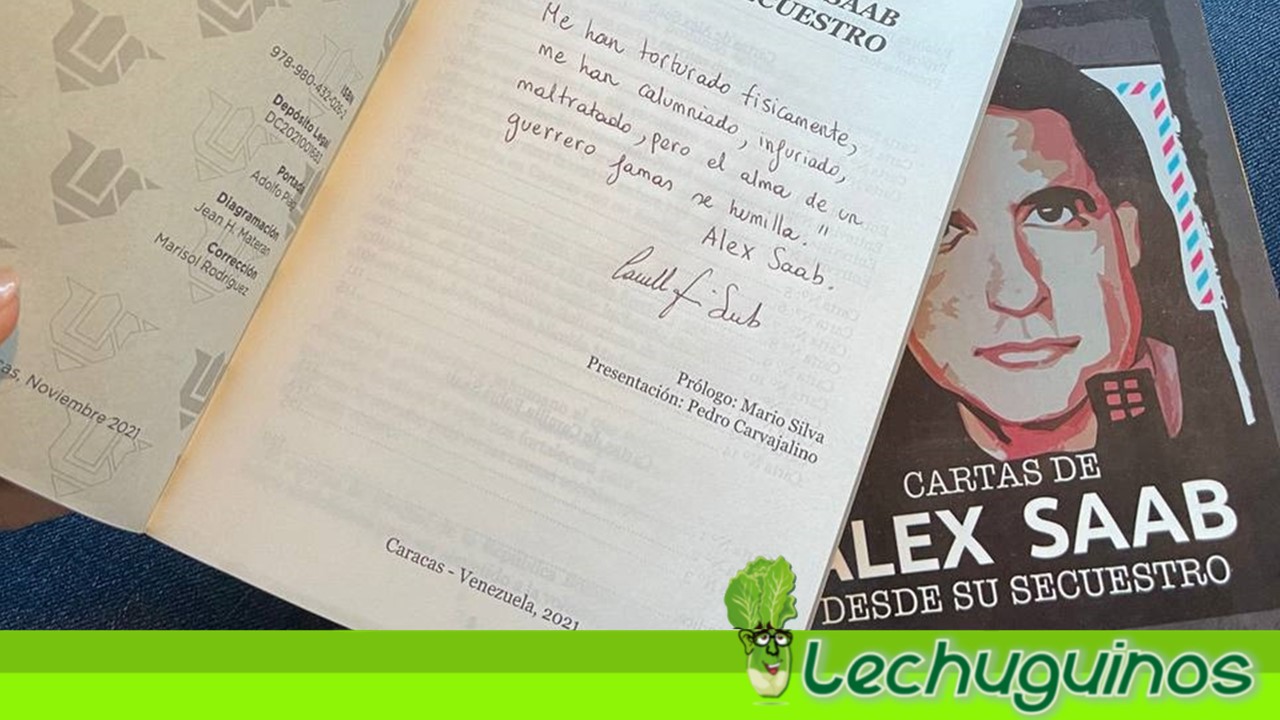 ISBN
978-980-432-026-2
Depósito Legal
DC2021001683
Portada
Adolfo
Diagramación
Jean H. Materan
Corrección
Marisol Rodríguez
Noviembre 2021
SAAB
SECUESTRO
Me han torturado fisicamente,
me han calumniado, injuriado,
maltratado, pero el alma de un
guerrero jamas se humilla."
Alex Saab.
Prólogo: Mario Silva
Presentación: Pedro Carvajalino
Caracas - Venezuela, 2021
CARTAS DE
ALEX SAAB
DESDE SU SECUESTRO
Lechuguinos